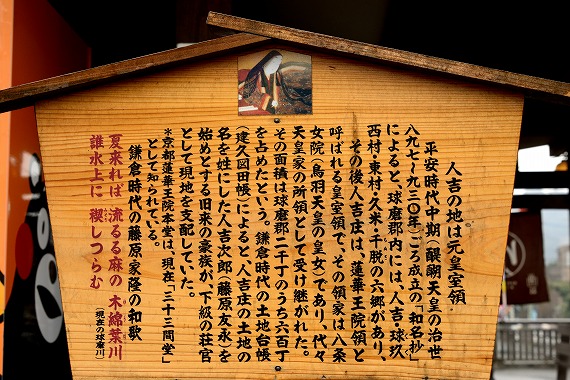 人吉の地は元皇室領
平安時代中期(醍醐天皇の治世
八九七〜九三〇年)ごろ成立の「和名抄」
によると、球磨郡内には、人吉・球玖
西村・東村・久米・千脱の六郷があり、
その後人吉庄は、蓮華王院領と
呼ばれる皇室領で、その領家は八条
女院(鳥羽天皇の皇女)であり、代々
天皇家の所領として受け継がれた。
その面積は球磨郡二千丁のうち六百丁
を占めたという。鎌倉時代の土地台帳
(建久図田帳)によると、人吉庄の土地の
名を姓にした人吉次郎(藤原友永)を
始めとする旧来の豪族が、下級の荘官
として現地を支配していた。
※京都蓮華王院本堂は、現在「三十三間堂」
として知られている。
鎌倉時代の藤原家隆の和歌
夏来れば 流るる麻の 木綿葉川
誰水上に 禊しつらむ
(現在の球磨川)